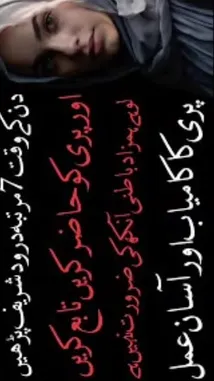 پری کا کامیاب اور آسان عمل
لوہے ہمزاد باطنی آنکھ کی ضرورت نہیں ہے
اور پری کو حاضر کریں تابع کریں
دن کے وقت 7 مرتبہ درود شریف پڑھیں